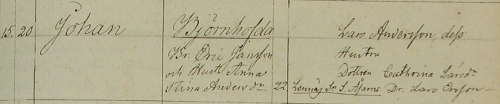 15. 20. Johan Björnhofda Lars Andersson, dess
Br. Eric Jansson Hustru
och Hust. Anna Dottren Cathrina Larsdr
Stina Andersdr 22 Dr. Lars Ersson